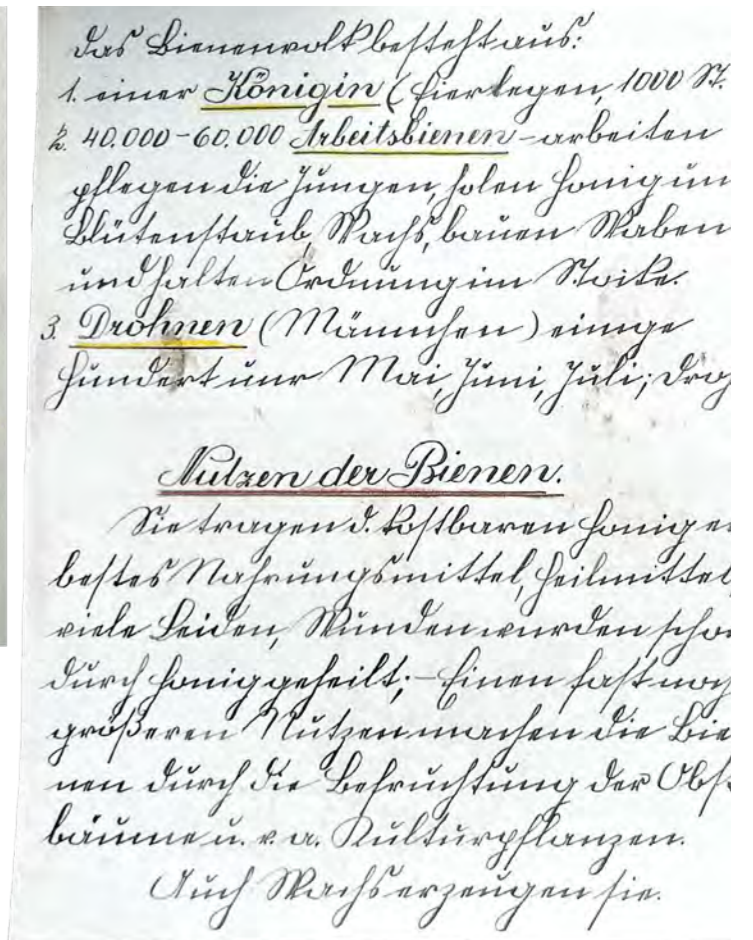 Das Bienenvolk besteht aus:
1. einer Königin (Eierlegen, 1000 St.
2. 40.000-60.000 Arbeitsbienen - arbeiten
pflegen die Jungen, holen Honig un
Blütenstaub, Wachs, bauen Waben
und halten Ordnung im Stocke.
3. Drohnen (Männchen) einige
Hundert nur Mai, Juni, Juli; Droh
Nutzen der Bienen.
Sie tragen d. kostbaren Honig ei
bestes Nahrungsmittel, Heilmittel,
viele Leiden, Wunden wurden scho
durch Honig geheilt; - Einen fast noch
größeren Nutzen machen die Bie
nen durch die Befruchtung der Obst
bäume u. v. a. Kulturpflanzen.
Auch Wachs erzeugen sie.